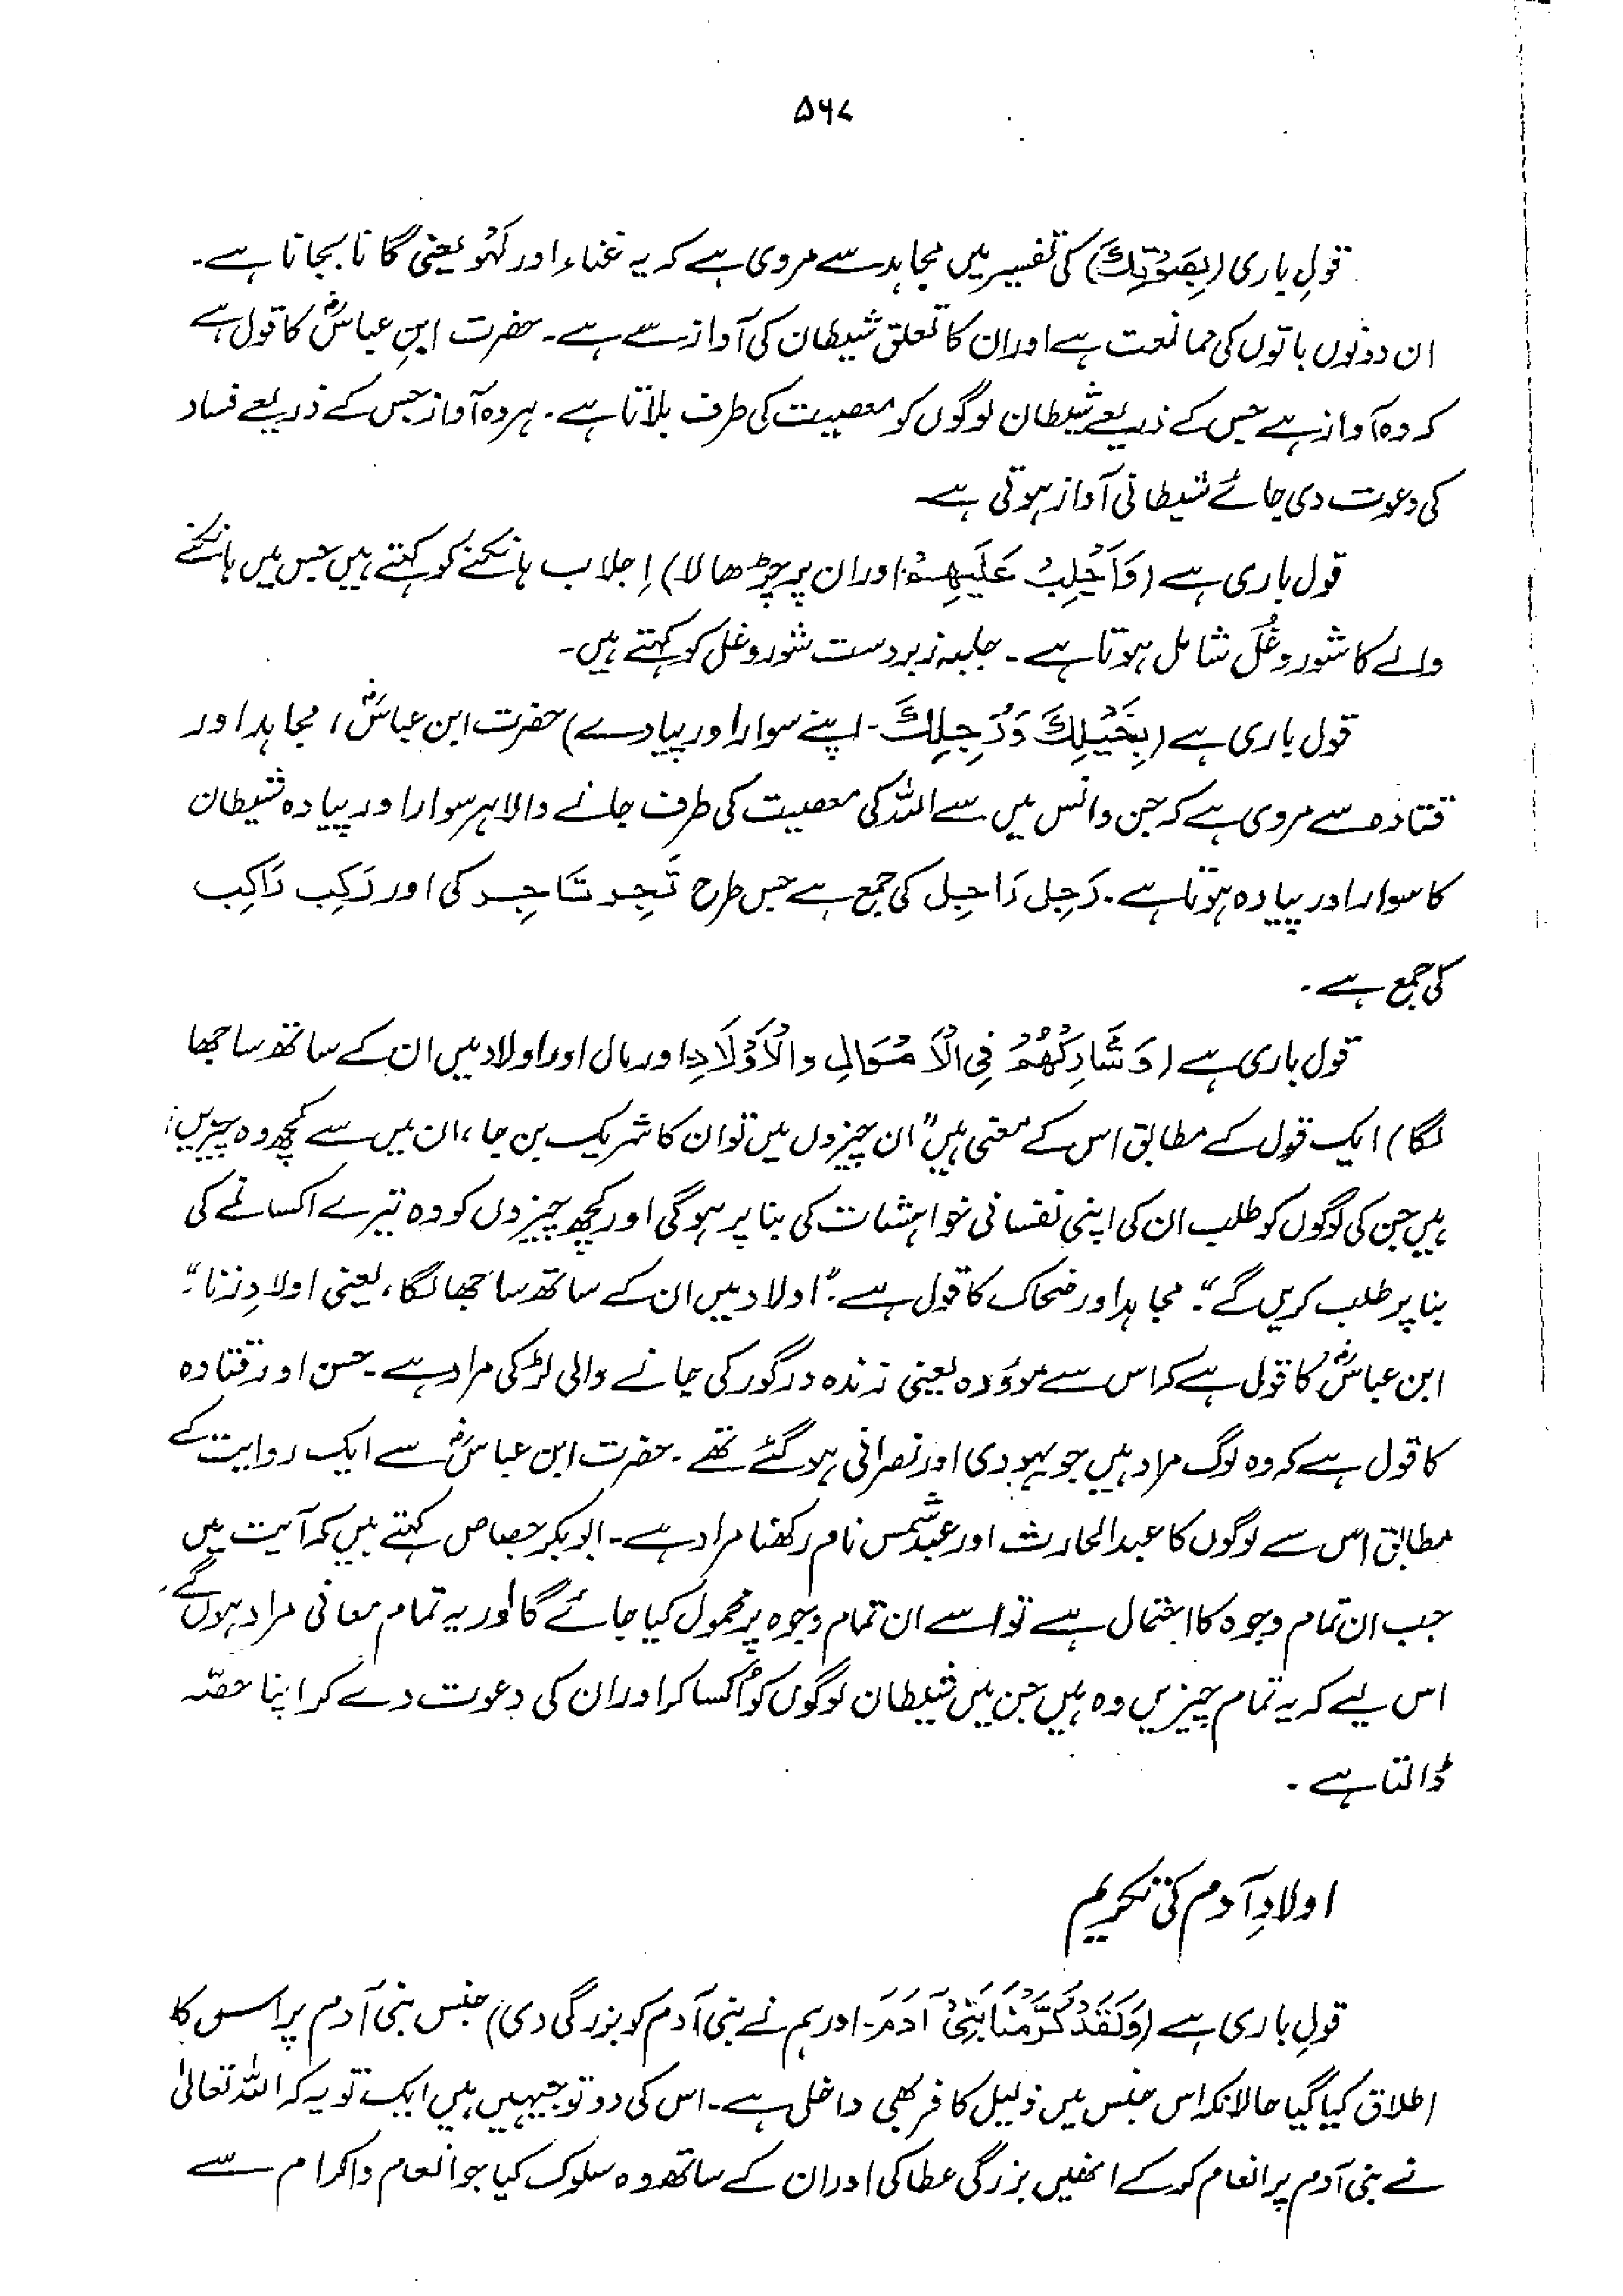 ۵۶۷
قولِ باری (بِصَوْتِکَ) کی تفسیر میں مجاہد سے مروی ہے کہ یہ غناء اور لَہْو یعنی گانا بجانا ہے۔
ان دونوں باتوں کی ممانعت ہے اور ان کا تعلق شیطان کی آواز سے ہے۔ حضرت ابنِ عباسؓ کا قول ہے
کہ وہ آواز ہے جس کے ذریعے شیطان لوگوں کو معصیت کی طرف بلاتا ہے۔ ہر وہ آواز جس کے ذریعے فساد
کی دعوت دی جائے شیطانی آواز ہوتی ہے
قول باری ہے (وَاَجْلِبْ عَلَیْھِمْ۔ اور ان پر چڑھا لا) اِجلاب ہانکنے کو کہتے ہیں جس میں ہانکنے
والے کا شور و غُل شامل ہوتا ہے۔ جلبہ زبردست شور و غل کو کہتے ہیں۔
قول باری ہے (بِخَیْلِکَ وَرَجِلِکَ۔ اپنے سوار اور پیادے) حضرت ابن عباسؓ، مجاہد اور
قتادہ سے مروی ہے کہ جن و انس میں سے اللہ کی معصیت کی طرف جانے والا ہر سوار اور پیادہ شیطان
کا سوار اور پیادہ ہوتا ہے۔ رَجِل رَاجِل کی جمع ہے جس طرح تَجِر تَاجِر کی اور رَکِب رَاکِب
کی جمع ہے۔
قول باری ہے (وَشَارِکْھُمْ فِی الْاَمْوَالِ والْاَوْلَادِ اور مال اور اولاد میں ان کے ساتھ ساجھا
لگا) ایک قول کے مطابق اس کے معنی ہیں "ان چیزوں میں تو ان کا شریک بن جا، ان میں سے کچھ وہ چیزیں
ہیں جن کی لوگوں کو طلب ان کی اپنی نفسانی خواہشات کی بنا پر ہوگی اور کچھ چیزوں کو وہ تیرے اکسانے کی
بنا پر طلب کریں گے"۔ مجاہد اور ضحاک کا قول ہے۔ "اولاد میں ان کے ساتھ ساجھا لگا، یعنی اولادِ زنا"۔
ابن عباسؓ کا قول ہے کہ اس سے موؤدہ یعنی زندہ درگور کی جانے والی لڑکی مراد ہے۔ حسن اور قتادہ
کا قول ہے کہ وہ لوگ مراد ہیں جو یہودی اور نصرانی ہو گئے تھے۔ حضرت ابن عباسؓ سے ایک روایت کے
مطابق اس سے لوگوں کا عبدالحارث اور عبدشمس نام رکھنا مراد ہے۔ ابوبکر جصاص کہتے ہیں کہ آیت میں
جب ان تمام وجوہ کا احتمال ہے تو اسے ان تمام وجوہ پر محمول کیا جائے گا اور یہ تمام معانی مراد ہوں گے۔
اس لیے کہ یہ تمام چیزیں وہ ہیں جن میں شیطان لوگوں کو اُکسا کر اور ان کی دعوت دے کر اپنا حصّہ
ڈالتا ہے۔
اولادِ آدم کی تکریم
قولِ باری ہے (وَلَقَدْ کَرَّمْنَا بَنِیْ آدَمَ۔ اور ہم نے بنی آدم کو بزرگی دی) جنس بنی آدم پر اس کا
اطلاق کیا گیا حالانکہ اس جنس میں ذلیل کافر بھی داخل ہے۔ اس کی دو توجیہیں ہیں ایک تو یہ کہ اللہ تعالیٰ
نے بنی آدم پر انعام کر کے انھیں بزرگی عطا کی اور ان کے ساتھ وہ سلوک کیا جو انعام و اکرام سے